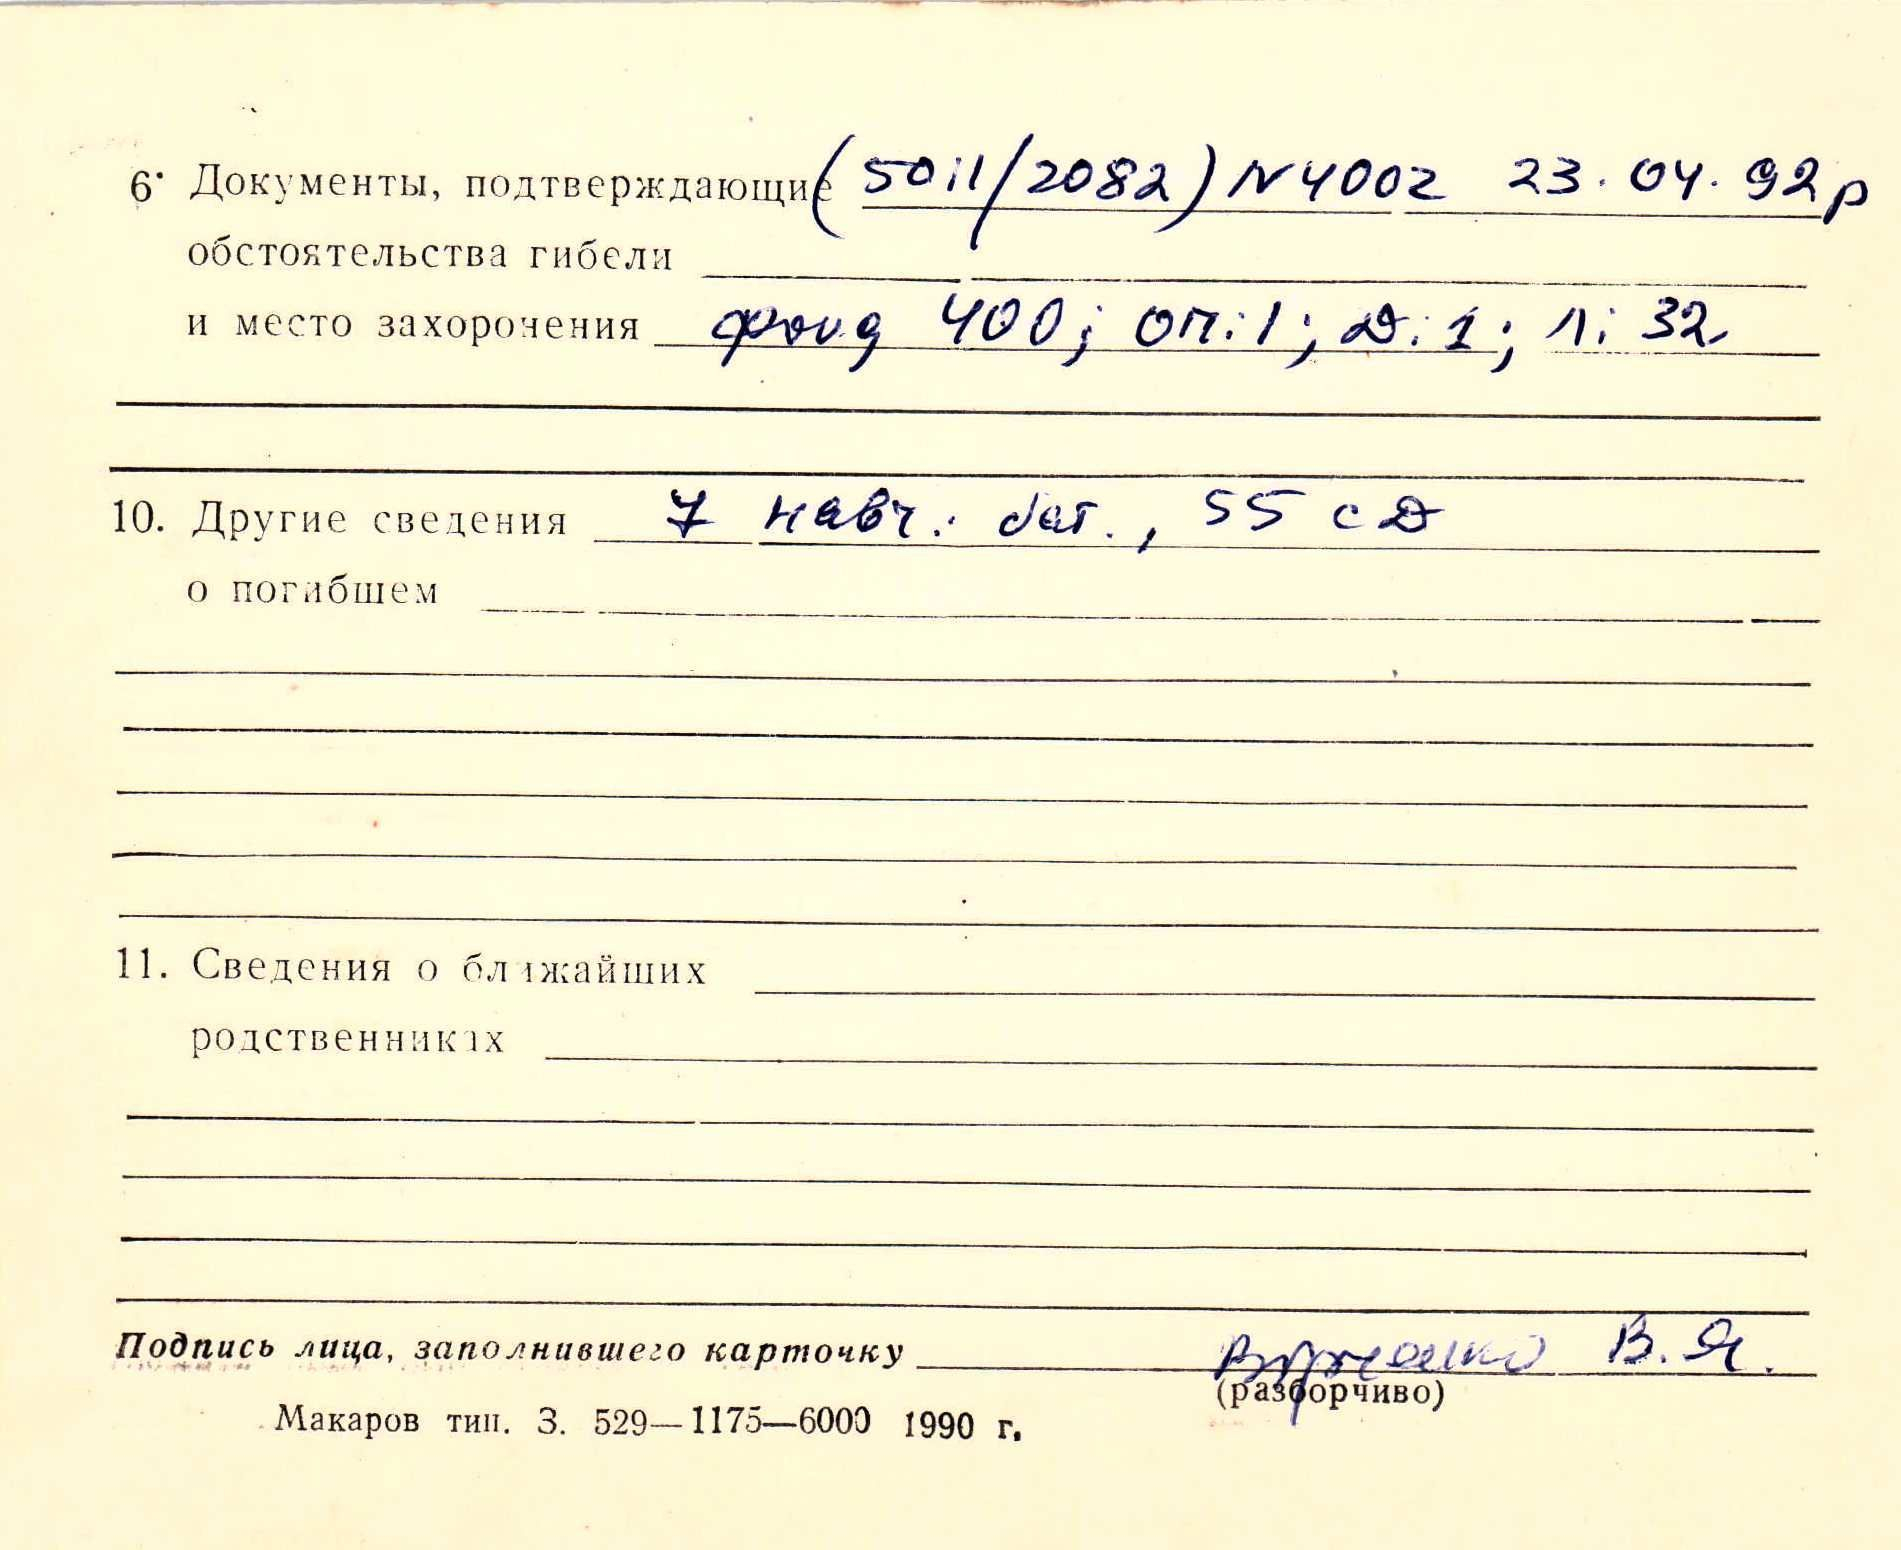 6. Документы, подтверждающие (5011/2082) N 4002 23.04.92р
обстоятельства гибели
и место захоронения фонд 400; оп: 1; Д: 1; л: 32
10. Другие сведения 7 навч. бат., 55 сд
о погибшем
11. Сведения о ближайших
родственниках
Подпись лица, заполнившего карточку В. Я.
(разборчиво)
Макаров тип. З. 529—1175—6000 1990 г.